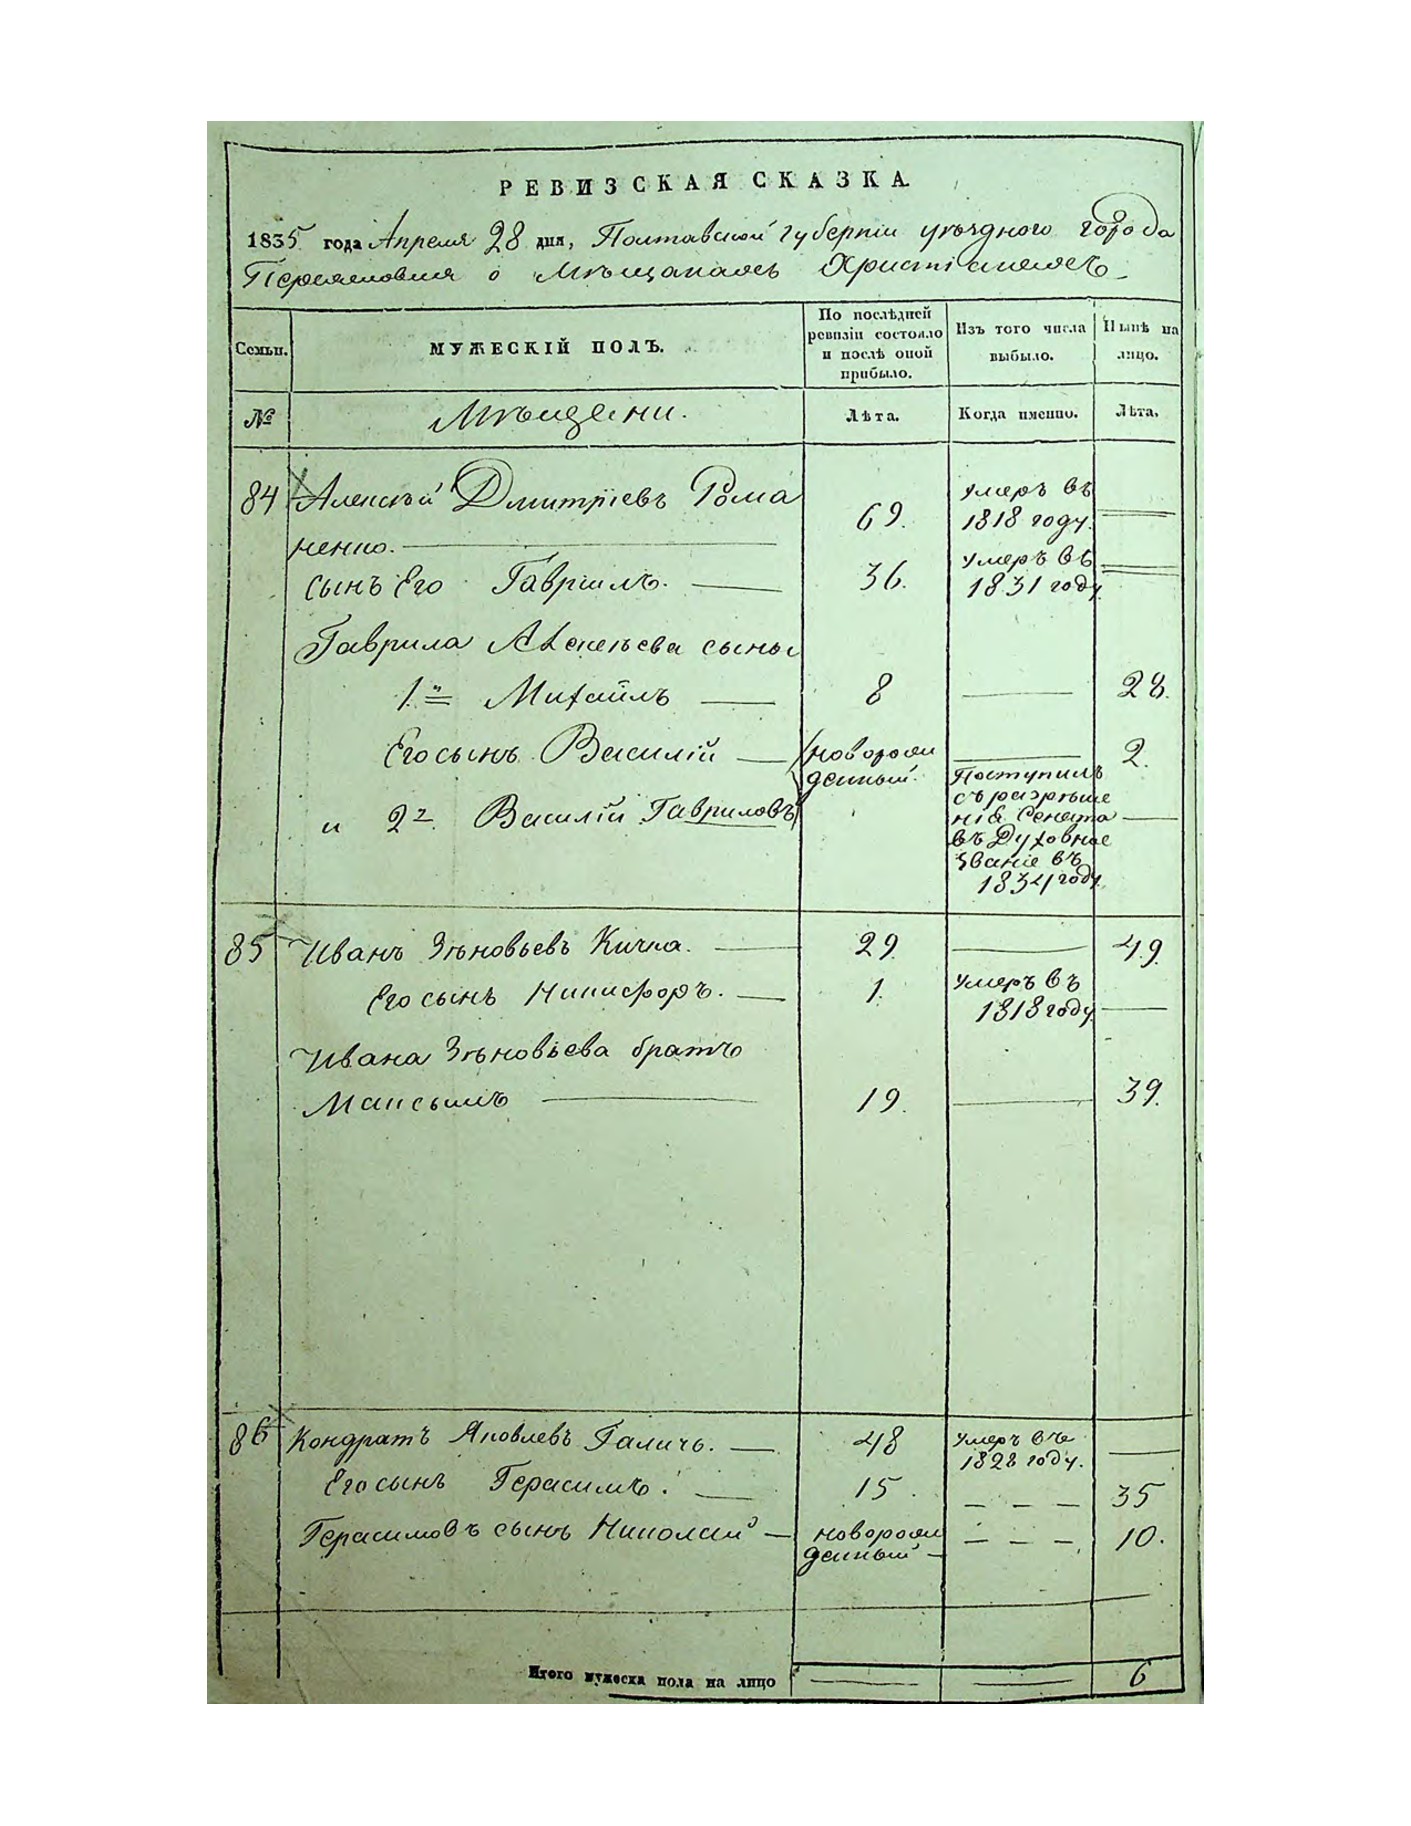 РЕВИЗСКАЯ СКАЗКА.
1835 года Апреля 28 дня, Полтавской губерніи уѣзднаго города
Переяславля о Мѣщанахъ Христіанахъ
Семьи.
МУЖЕСКІЙ ПОЛЪ.
По послѣдней
ревизіи состояло
и послѣ оной
прибыло.
Изъ того числа
выбыло.
Нынѣ на
лицо.
№
Мѣщени.
Лѣта.
Когда именно.
Лѣта.
84 Алексѣй Дмитріевъ Рома
ненко.
69.
умеръ въ
1818 году.
сынъ Его Гавріилъ.
36.
умеръ въ
1831 году
Гаврила Алексѣева сыны
1й Михаилъ
8
28.
Его сынъ Василій
новорож
денный.
2.
и 2й Василій Гавриловъ
Поступилъ
съ разрѣше
нія Сената
въ Духовное
званіе въ
1834 году
85 Иванъ Зѣновьевъ Кичка.
29.
49.
Его сынъ Никифоръ.
1.
умеръ въ
1818 году
Ивана Зѣновьева братъ
Максымъ
19.
39.
86 Кондратъ Яковлевъ Галичь.
48
умеръ въ
1828 году.
Его сынъ Герасимъ.
15.
35
Герасимовъ сынъ Николай
новорож
денный
10.
Итого мужеска пола на лицо
6